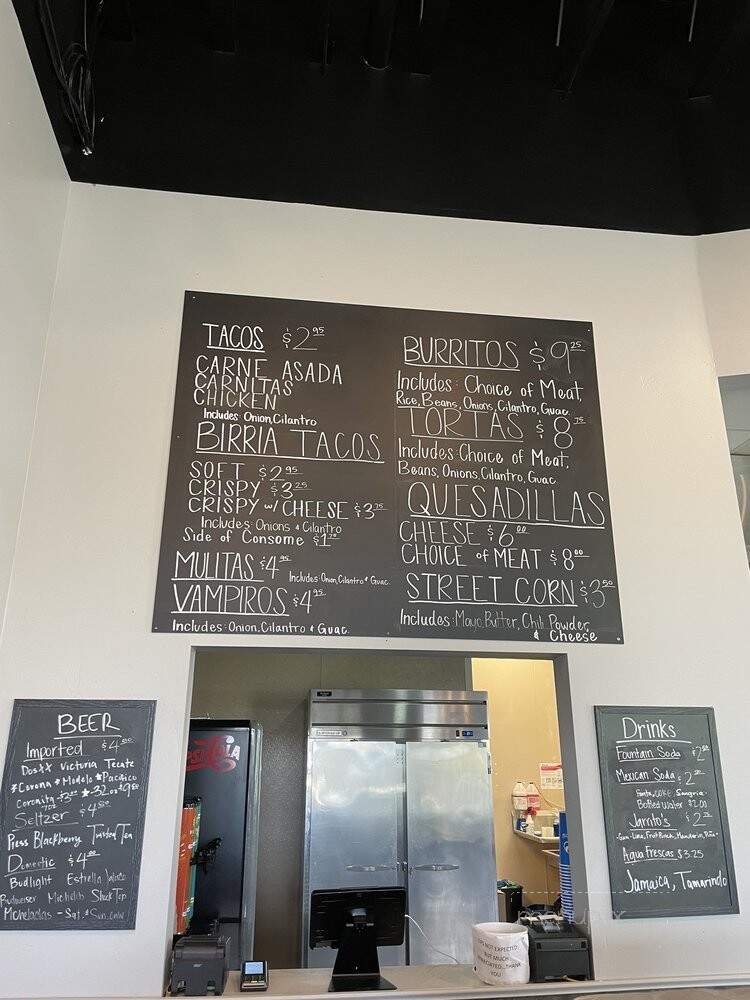 TACOS $2.95
CARNE ASADA
CARNITAS
CHICKEN
Includes: Onion, Cilantro
BIRRIA TACOS
SOFT $2.95
CRISPY $3.25
CRISPY w/ CHEESE $3.75
Includes: Onions & Cilantro
Side of Consome
MULITAS $4.95
Includes: Onion, Cilantro & Guac
VAMPIROS $4.95
Includes: Onion, Cilantro & Guac
BURRITOS $9.25
Includes: Choice of Meat,
Rice, Beans, Onions, Cilantro, Guac
TORTAS $8.75
Includes: Choice of Meat,
Beans, Onions, Cilantro, Guac
QUESADILLAS
CHEESE $6.00
CHOICE of MEAT $8.00
STREET CORN $3.50
Includes: Mayo, Butter, Chili Powder,
& Cheese
BEER
Imported $4.50
DosXX Victoria Tecate
*Corona *Modelo *Pacifico
Coronita
Seltzer $4.50
Press Blackberry Twisted Tea
Domestic $4.00
Budlight Estrella
Budweiser Michelob Shock Top
Micheladas - Sat. & Sun. only
PEPSI-COLA
TIPS NOT EXPECTED
BUT MUCH
APPRECIATED...THANK
YOU!
Drinks
Fountain Soda
Mexican Soda
Fanta, COKE, Sangria
Bottled Water $2.00
Jarrito's
Guava-Lime, Fruit Punch, Mandarin, Piña
Agua Frescas $3.25
Jamaica, Tamarindo